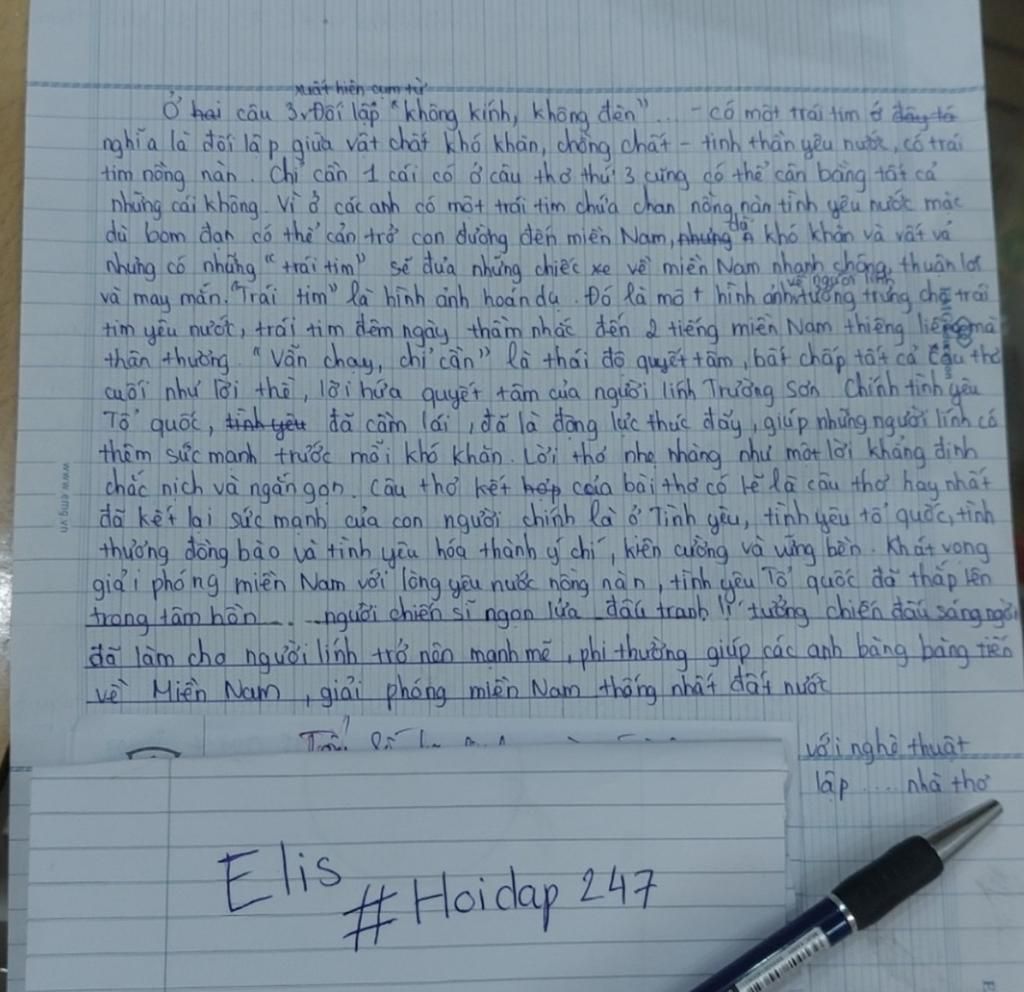 xuất hiện cụm từ
Ở hai câu 3, Đối lập "không kính, không đèn" ... - có một trái tim ở đây tá
nghĩa là đối lập giữa vật chất khó khăn, chồng chất - tinh thần yêu nước, có trái
tim nồng nàn. Chỉ cần 1 cái có ở câu thơ thứ 3 cũng có thể cân bằng tất cả
những cái không. Vì ở các anh có một trái tim chứa chan nồng nàn tình yêu nước mặc
dù bom đạn có thể cản trở con đường đến miền Nam, nhưng dù khó khăn và vất vả
nhưng có những "trái tim" sẽ đưa những chiếc xe về miền Nam nhanh chóng, thuận lợi
và may mắn. "Trái tim" là hình ảnh hoán dụ. Đó là một hình ảnh về người lính tượng trưng cho trái
tim yêu nước, trái tim đêm ngày thầm nhắc đến 2 tiếng miền Nam thiêng liêng mà
thân thương. "Vẫn chạy, chỉ cần" là thái độ quyết tâm, bất chấp tất cả Câu thơ
cuối như lời thề, lời hứa quyết tâm của người lính Trường Sơn Chính tình yêu
Tổ quốc, tình yêu đã cầm lái, đã là động lực thúc đẩy, giúp những người lính có
thêm sức mạnh trước mỗi khó khăn. Lời thơ nhẹ nhàng như một lời khẳng định
chắc nịch và ngắn gọn. Câu thơ kết hợp của bài thơ có lẽ là câu thơ hay nhất
đã kết lại sức mạnh của con người chính là ở Tình yêu, tình yêu tổ quốc, tình
thương đồng bào và tình yêu hóa thành ý chí, kiên cường và vững bền. Khát vọng
giải phóng miền Nam với lòng yêu nước nồng nàn, tình yêu Tổ quốc đã thắp lên
trong tâm hồn ... người chiến sĩ ngọn lửa đấu tranh lí tưởng chiến đấu sáng ngời
đã làm cho người lính trở nên mạnh mẽ, phi thường giúp các anh băng băng tiến
về Miền Nam, giải phóng miền Nam thống nhất đất nước
với nghệ thuật
lập ... nhà thơ
Elis
#Hoidap247